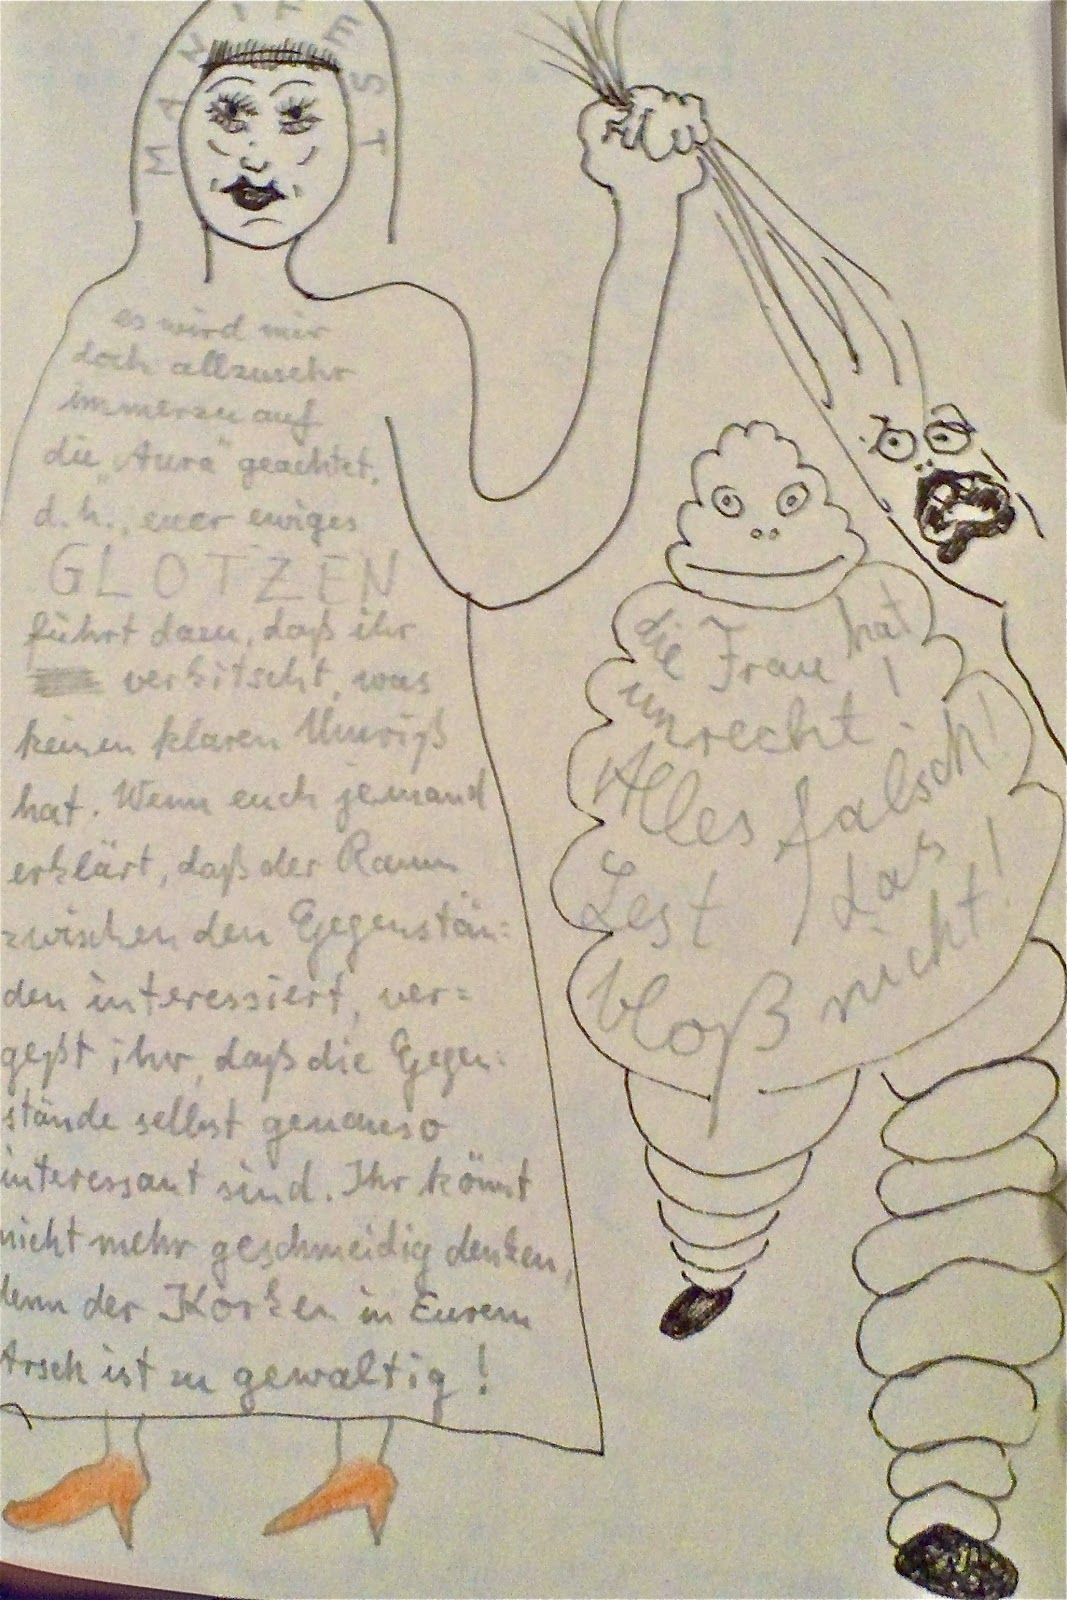 MANIFEST
es wird mir
doch allzusehr
immerzu auf
die "Aura" geachtet.
d.h., euer ewiges
GLOTZEN
führt dazu, daß ihr
verkitscht, was
keinen klaren Umriß
hat. Wenn euch jemand
erklärt, daß der Raum
zwischen den Gegenstän=
den interessiert, ver=
geßt ihr, daß die Gegen=
stände selbst genauso
interessant sind. Ihr könnt
nicht mehr geschmeidig denken,
denn der Korken in Eurem
Arsch ist zu gewaltig!
die Frau hat
unrecht!
Alles falsch!
Lest das
bloß nicht!